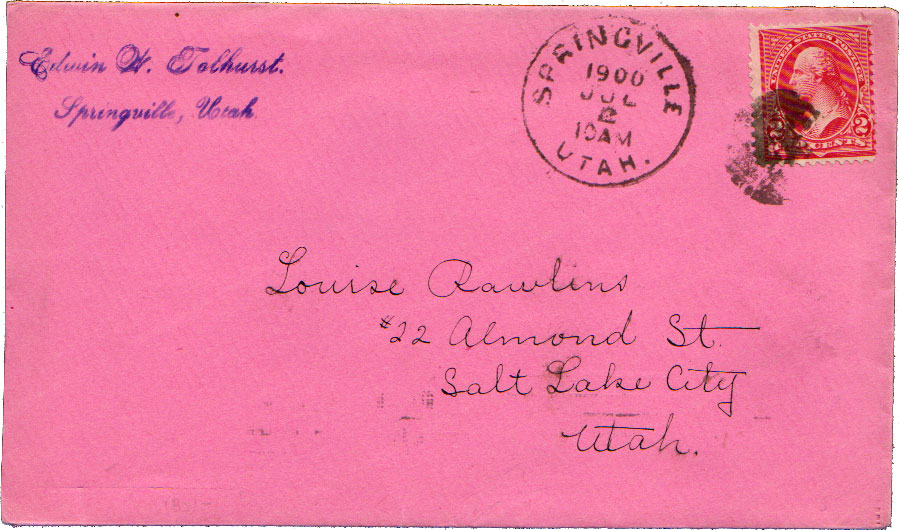 Edwin W. Tolhurst.
Springville, Utah
SPRINGVILLE
1900
JUL
2
10AM
UTAH.
UNITED STATES POSTAGE
2 2
CENTS
Louise Rawlins
#22 Almond St.
Salt Lake City
Utah.